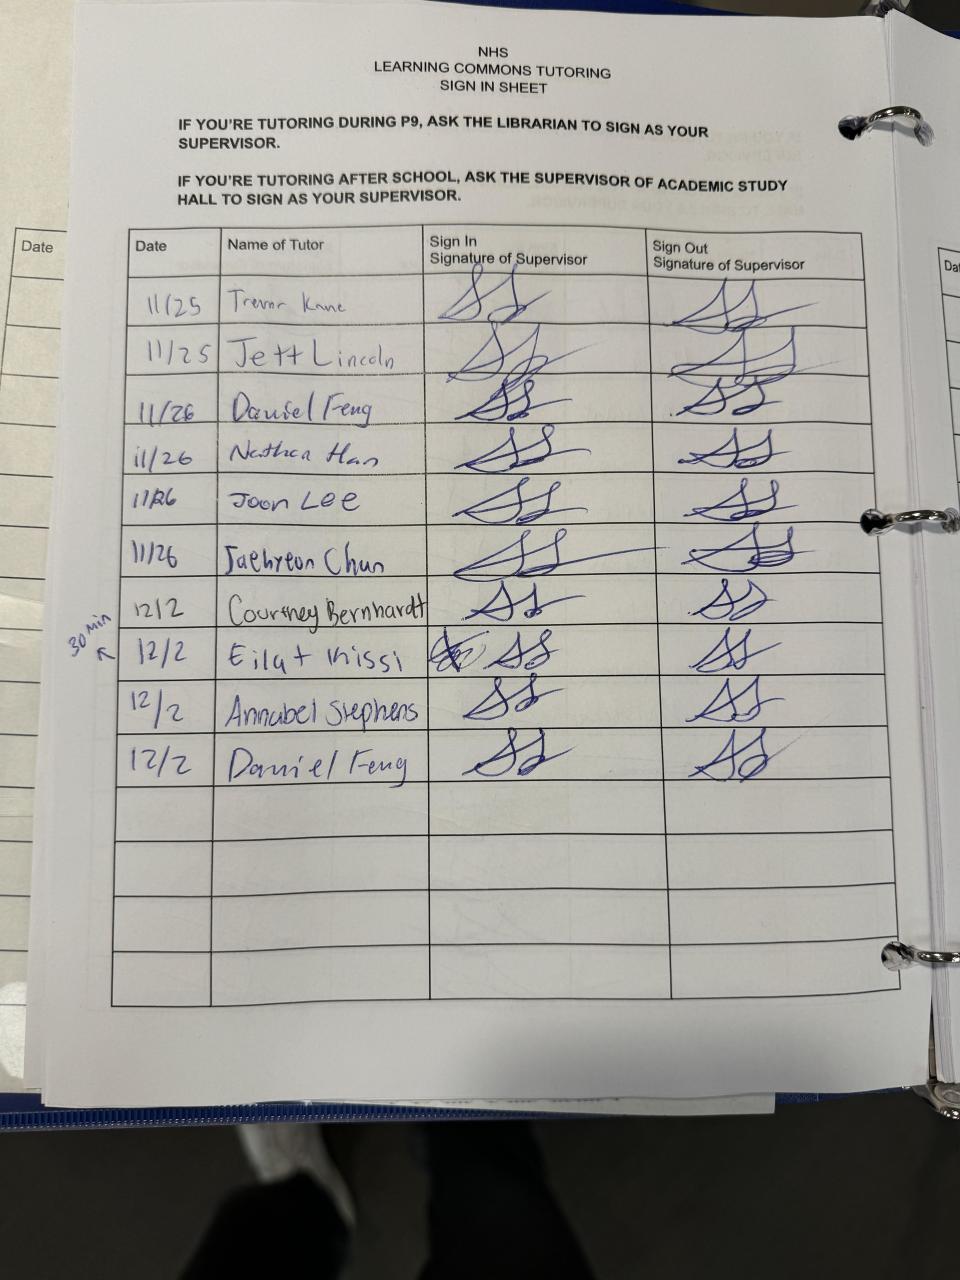 NHS
LEARNING COMMONS TUTORING
SIGN IN SHEET
IF YOU'RE TUTORING DURING P9, ASK THE LIBRARIAN TO SIGN AS YOUR
SUPERVISOR.
IF YOU'RE TUTORING AFTER SCHOOL, ASK THE SUPERVISOR OF ACADEMIC STUDY
HALL TO SIGN AS YOUR SUPERVISOR.
Date
Date Name of Tutor Sign In Signature of Supervisor Sign Out Signature of Supervisor
11/25 Trevor Kane
11/25 Jett Lincoln
11/26 Daniel Feng
11/26 Nathan Han
11/26 Joon Lee
11/26 Jaehyeon Chun
12/2 Courtney Bernhardt
30 min 12/2 Eilat Kissi
12/2 Annabel Stephens
12/2 Daniel Feng